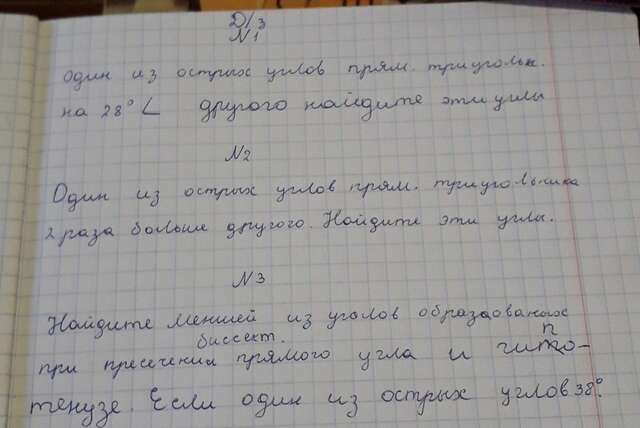 Д/З
N1
один из острых углов прям. триугольн.
на 28° ∠ другого найдите эти углы
N2
Один из острых углов прям. триугольника
2 раза больше другого. Найдите эти углы.
N3
Найдите меншей из уголов образдованых
биссект.
при пресечении прямого угла и гипо-
тенузе. Если один из острых углов 38°.